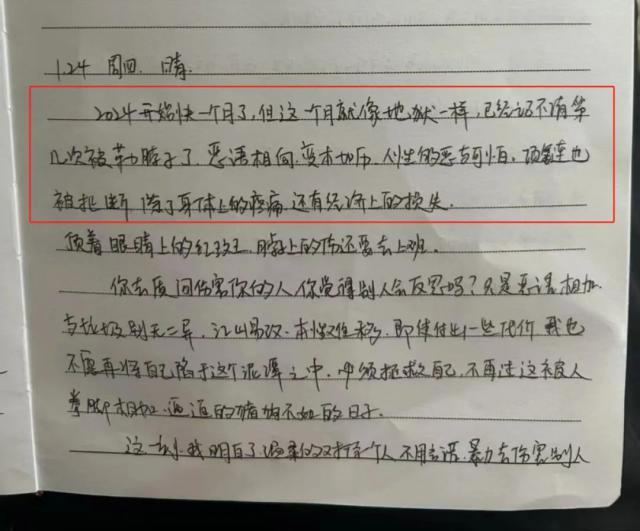 1.24 周四. 晴.
2024开始快一个月了,但这一个月就像地狱一样,已经记不清第
几次被勒脖子了,恶语相向,变本加厉,人性的恶真可怕,项链也
被扯断,除了身体上的疼痛,还有经济上的损失.
顶着眼睛上的红斑,脖上的伤还要去上班.
你去质问伤害你的人,你觉得别人会反思吗?只是恶语相加
与垃圾别无二异,江山易改.本性难移,即使付出一些代价,我也
不愿再将自己陷于这个泥潭之中,必须拯救自己,不再过这被人
拳脚相加,逼迫的猪狗不如的日子.
这一刻,我明白了温柔的对待个人不用言语.暴力去伤害别人